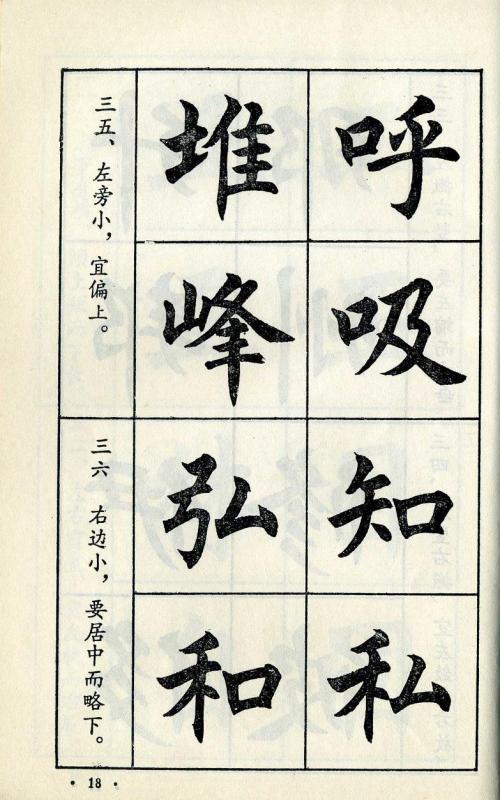 呼吸知私
堆峰弘和
三五、左旁小，宜偏上。
三六 右边小，要居中而略下。
·18·